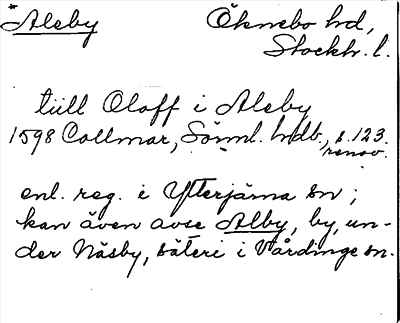 *Aleby Öknebo hd,
Stockh. l.
till Oloff i Aleby
1598 Collmar, Sörml. hdb., s. 123.
renov.
enl. reg. i Ytterjärna sn;
kan även avse Alby, by, un-
der Näsby, säteri i Vårdinge sn.